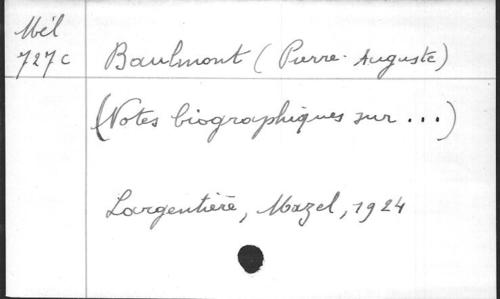 Mél
727c
Baulmont (Pierre-Auguste)
(Notes biographiques sur ...)
Largentière, Mazel, 1924